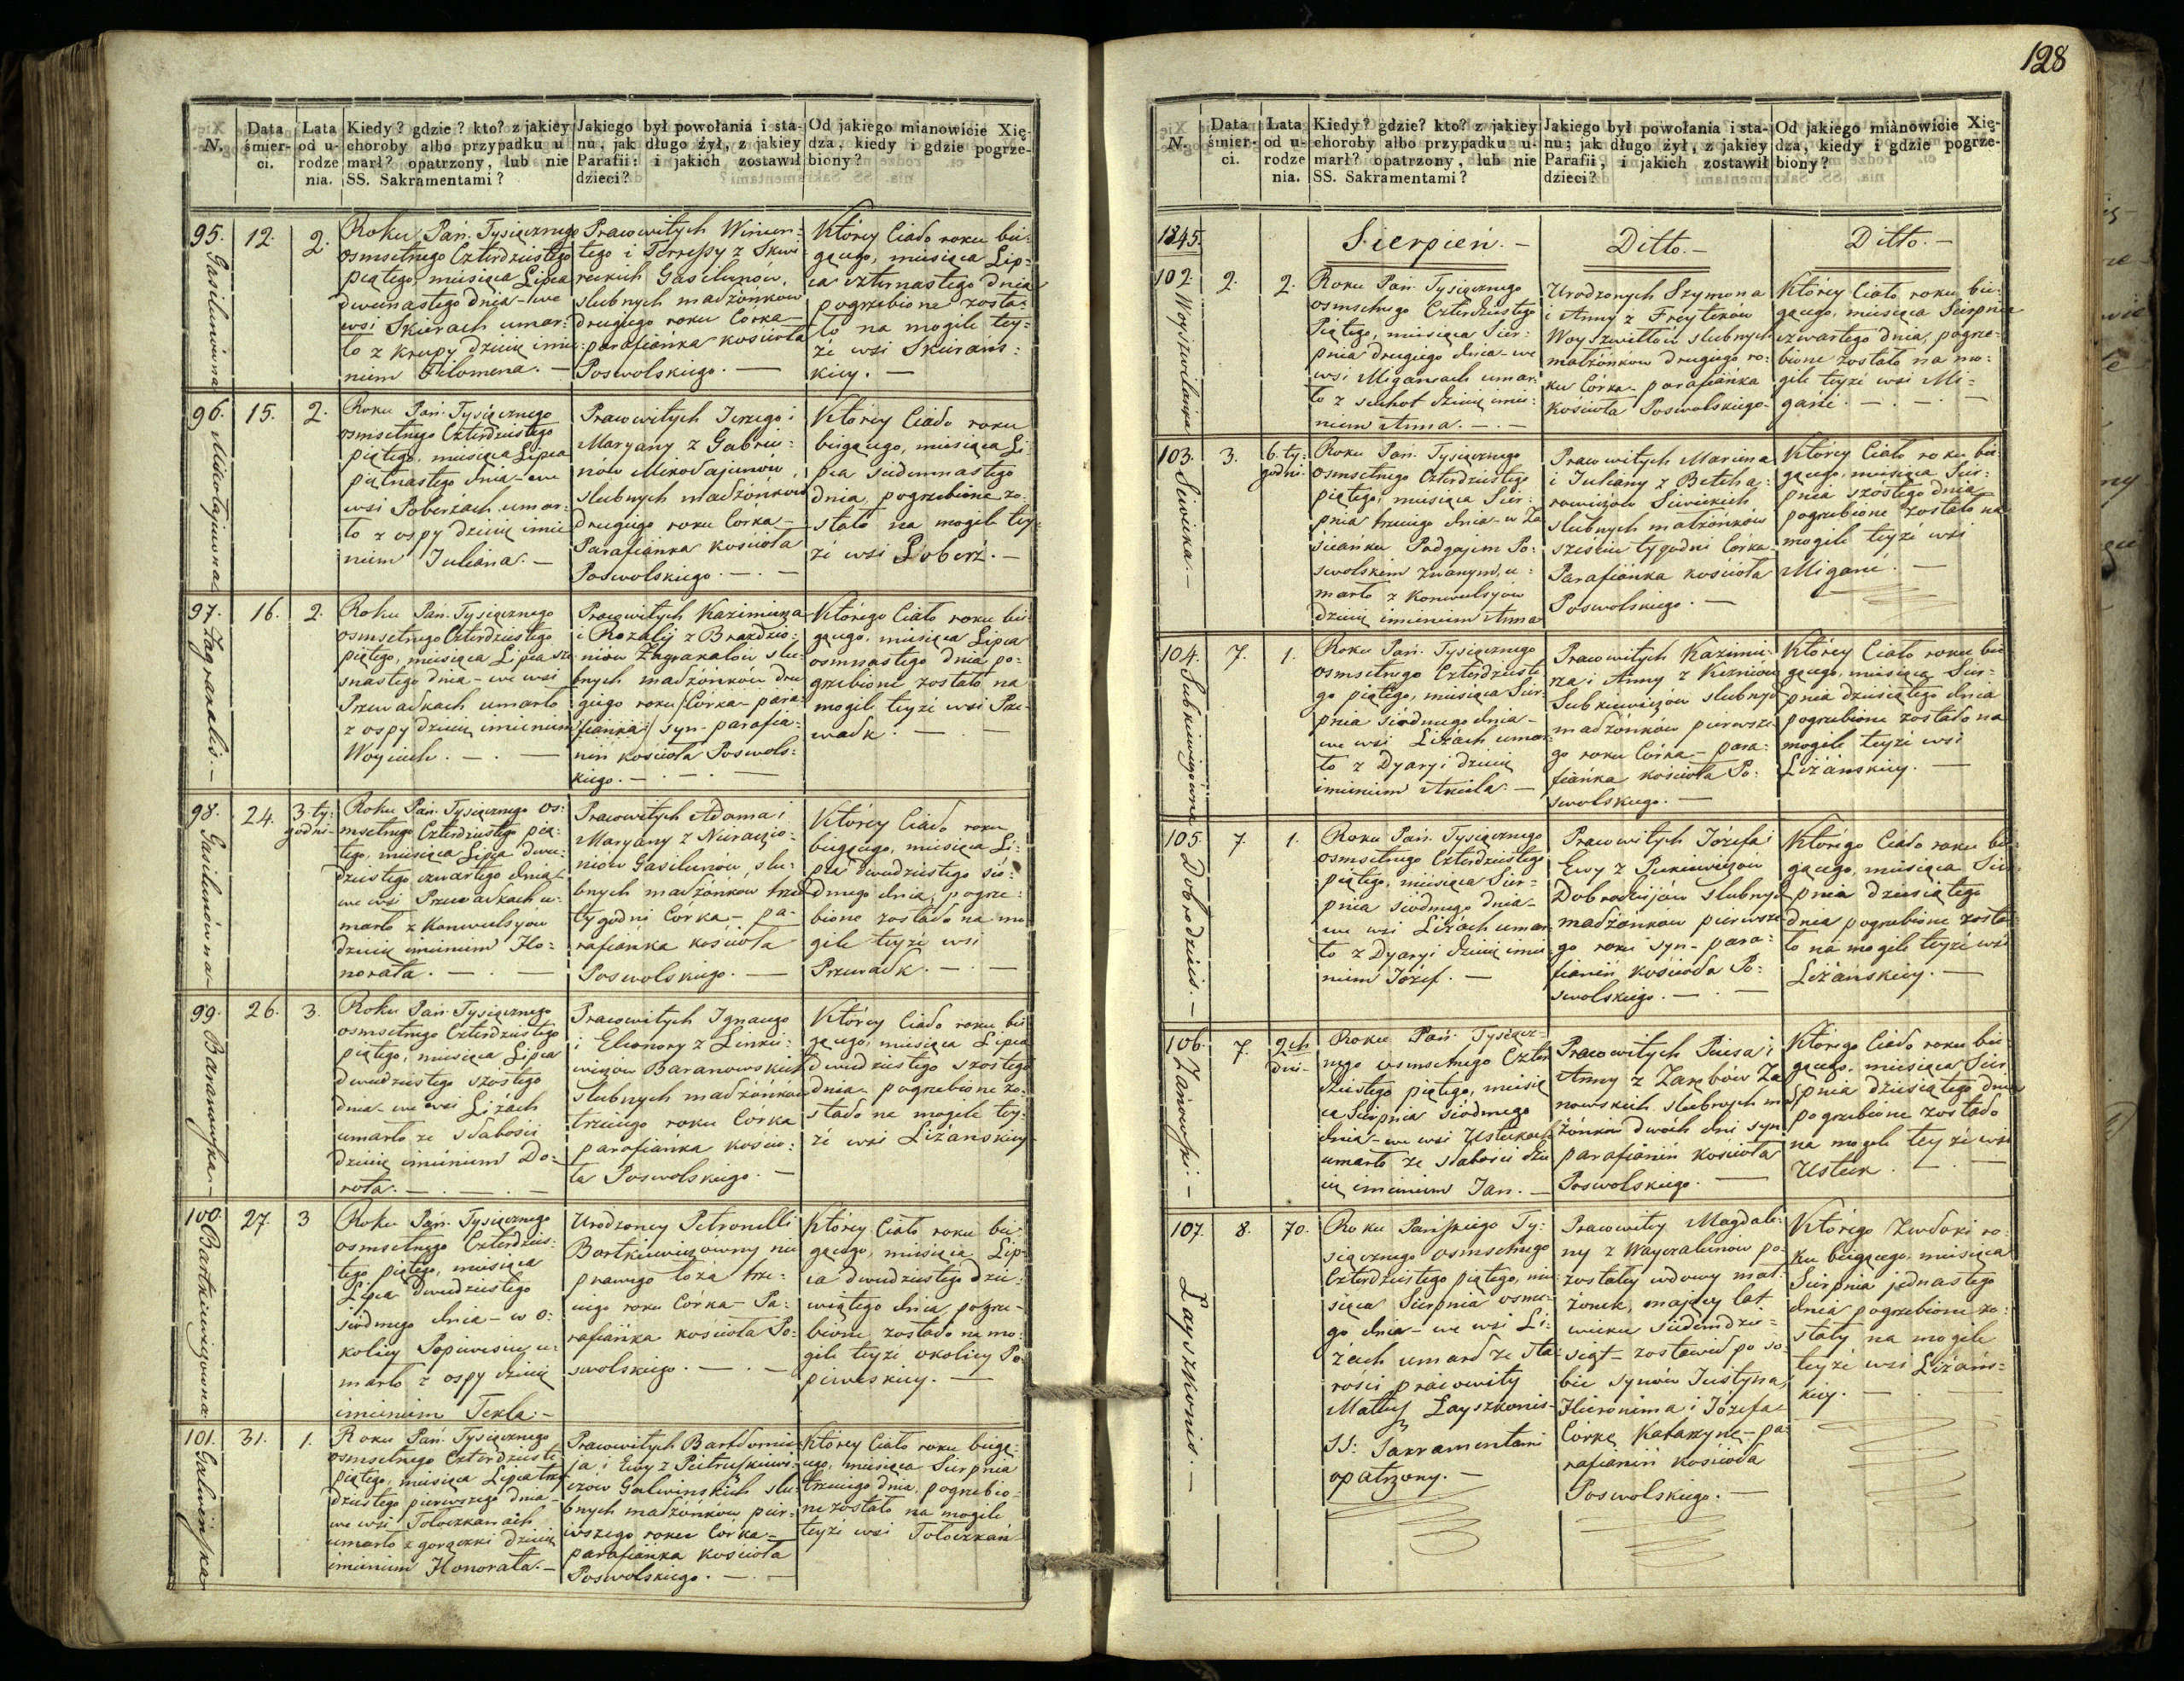 128
N.
Data śmier-
ci.
Lata
od u-
rodze
nia.
Kiedy? gdzie? kto? z jakiey
choroby albo przypadku u
marł? opatrzony, lub nie
SS. Sakramentami?
Jakiego był powołania i sta-
nu, jak długo żył, z jakiey
Parafii: i jakich zostawił
dzieci?
Od jakiego mianowicie Xię-
dza, kiedy i gdzie pogrze-
biony?
95.
Gasiluniówna
12.
2.
Roku Pań. Tysiącznego
osmsetnego Czterdziestego
piątego, miesiąca Lipca
dwunastego dnia - we
wsi Skierach umar:
ło z krupy dziecię imie:
niem Filomena. —
Pracowitych Wincen:
tego i Terressy z Skwi
reckich Gasilunow,
slubnych małżonkow
drugiego roku Córka —
parafianka kościoła
Poswolskiego. —
Którey Ciało roku bie:
gącego, miesiąca Lip:
ca czternastego dnia
pogrzebione zosta:
ło na mogile tey:
że wsi Skierańs:
kiey. —
96.
Mikołajunowna
15.
2.
Roku Pań. Tysiącznego
osmsetnego Czterdziestego
piątego, miesiąca Lipca
piętnastego dnia - we
wsi Poberżach umar:
ło z ospy dziecię imie
niem Juliana. —
Pracowitych Jerzego i
Maryany z Gabreu:
nów Mikołajunów,
slubnych małżónków
drugiego roku Córka —
Parafianka kościoła
Poswolskiego. — . —
Którey Ciało roku
biegącego, miesiąca Li
pca siedemnastego
dnia pogrzebione zo:
stało na mogile tey:
że wsi Poberż. —
97.
Zagrakalis. —
16.
2.
Roku Pań. Tysiącznego
osmsetnego Czterdziestego
piątego, miesiąca Lipca sze
snastego dnia - we wsi
Przewadkach umarło
z ospy dziecię imieniem
Woyciech. — . —
Pracowitych Kazimierza
i Rozalij z Brazdzio:
niów Zagrakalow slu:
bnych małżónków dru
giego roku /Córka - para
fianka/ syn - parafia:
nin kościoła Poswols:
kiego. — . —
Którego Ciało roku bie
gącego, miesiąca Lipca
osmnastego dnia po:
grzebione zostało na
mogile teyże wsi Prze:
wadk. — . —
98.
Gasilunówna —
24.
3. ty:
godni —
Roku Pań. Tysiącznego os:
msetnego Czterdziestego pią:
tego, miesiąca Lipca dwu:
dziestego czwartego dnia -
we wsi Przewadkach u:
marło z Konwulsyow
dziecię imieniem Ho:
norata. — . —
Pracowitych Adama i
Maryany z Nieraczio:
niów Gasilunow, slu:
bnych małżónków trzech
tygodni Córka - pa:
rafianka kościoła
Poswolskiego. —
Którey Ciało roku
biegącego, miesiąca Li:
pca dwudziestego sió:
dmego dnia, pogrze:
bione zostało na mo
gile teyże wsi
Przewadk. — . —
99.
Baranowska —
26.
3.
Roku Pań. Tysiącznego
osmsetnego Czterdziestego
piątego, miesiąca Lipca
dwudziestego szóstego
dnia - we wsi Liżach
umarło ze słabości
dziecię imieniem Do:
rota. — . —
Pracowitych Ignacego
i Eleonory z Linkie:
wiczow Baranowskich
slubnych małżónków
trzeciego roku Córka
parafianka kościo:
ła Poswolskiego. —
Którey Ciało roku bie
gącego, miesiąca Lipca
dwudziestego szóstego
dnia - pogrzebione zo:
stało na mogile tey:
że wsi Liżanskiey
100.
Bartkiewiczowna
27.
3
Roku Pań. Tysiącznego
osmsetnego Czterdzies:
tego piątego, miesiąca
Lipca dwudziestego
siódmego dnia - w o:
kolicy Popiwesiu u:
marło z ospy dziecię
imieniem Tekla. —
Urodzoney Petronelli
Bartkiewiczówny nie
prawego łoża trze:
ciego roku Córka - Pa:
rafianka kościoła Po:
swolskiego. — . —
Którey Ciało roku bie
gącego, miesiąca Lip
ca dwudziestego dzie:
wiątego dnia, pogrze:
bione zostało na mo:
gile teyże okolicy Po
piweskiey. —
101.
Galwińska
31.
1.
Roku Pań. Tysiącznego
osmsetnego Czterdzieste
piątego, miesiąca Lipca trzy
dziestego pierwszego dnia -
we wsi Tołoczkaniach
umarło z gorączki dziecię
imieniem Honorata. —
Pracowitych Bartłomie
ja i Ewy z Pietruszkiewi
czow Galwińskich slu:
bnych małżónków pier:
wszego roku Córka —
parafianka kościoła
Poswolskiego. — . —
Którey Ciało roku biegą:
cego, miesiąca Sierpnia
trzeciego dnia, pogrzebio:
ne zostało na mogile
teyże wsi Tołoczkań
N.
Data
śmier-
ci.
Lata
od u-
rodze
nia.
Kiedy? gdzie? kto? z jakiey
choroby albo przypadku u-
marł? opatrzony, lub nie
SS. Sakramentami?
Jakiego był powołania i sta-
nu; jak długo żył, z jakiey
Parafii, i jakich zostawił
dzieci?
Od jakiego mianowicie Xię-
dza, kiedy i gdzie pogrze-
biony?
1845.
Sierpień. —
Ditto. —
Ditto. —
102.
Woyszwiłłanka
2.
2.
Roku Pań. Tysiącznego
osmsetnego Czterdziestego
Piątego, miesiąca Sier:
pnia drugiego dnia - we
wsi Migancach umar:
ło z suchot dziecię imie:
niem Anna. — . —
Urodzonych Szymona
i Anny z Freytików
Woyszwiłłów slubnych
małżónków drugiego ro:
ku Córka - parafianka
kościoła Poswolskiego -
Którey Ciało roku bie:
gącego, miesiąca Sierpnia
czwartego dnia, pogrze:
bione zostało na mo:
gile teyże wsi Mi:
gańć. — . — . —
103.
Siwicka. —
3.
6. ty:
godni -
Roku Pań. Tysiącznego
osmsetnego Czterdziestego
piątego, miesiąca Sier:
pnia trzeciego dnia - w Za
ścianku Podgajem Po:
swolskim zwanym, u:
marło z Konwulsyow
dziecię imieniem Anna
Pracowitych Marcina
i Juliany z
Siwickich
slubnych małżónków
sześciu tygodni Córka
Parafianka kościoła
Poswolskiego. —
Którey Ciało roku bie
gącego, miesiąca Sier:
pnia szóstego dnia
pogrzebione zostało na
mogile teyże wsi
Miganć. —
104.
Subkiewiczowna
7.
1.
Roku Pań. Tysiącznego
osmsetnego Czterdzieste
go piątego, miesiąca Sier:
pnia siódmego dnia -
we wsi Liżach umar
ło z Dyaryi dziecię
imieniem Aniela. —
Pracowitych Kazimie:
rza i Anny z Kuzniow
Subkiewiczow slubnych
małżónków pierwsze
go roku Córka - para:
fianka kościoła Po:
swolskiego. —
Którey Ciało roku bie
gącego, miesiąca Sier:
pnia dziesiątego dnia
pogrzebione zostało na
mogile teyże wsi
Liżańskiey. —
105.
Dobrodzieis. —
7.
1.
Roku Pań. Tysiącznego
osmsetnego Czterdziestego
piątego, miesiąca Sier:
pnia siódmego dnia -
we wsi Liżach umar
ło z Dyaryi dziecię imie
niem Józef. —
Pracowitych Józefa i
Ewy z Puciewiczow
Dobrodziejów slubnych
małżónkow pierwsze
go roku syn - para:
fianin kościoła Po:
swolskiego. — . —
Którego Ciało roku bie:
gącego, miesiąca Sier:
pnia dziesiątego
dnia pogrzebione zosta
ło na mogile teyże wsi
Liżanskiey. —
106.
Zanowski. —
7.
2ch
dni —
Roku Pań. Tysiącz:
nego osmsetnego Czter
dziestego piątego, miesią
ca Sierpnia siódmego
dnia - we wsi Ustukach
umarło ze słabości dzie
cię imieniem Jan. —
Pracowitych Piusa i
Anny z Zarębów Za
nowskich slubnych mał
żónkow dwóch dni syn
parafianin kościoła
Poswolskiego. —
Którego Ciało roku bie:
gącego, miesiąca Sier
pnia dziesiątego dnia
pogrzebione zostało
na mogile teyże wsi
Ustuk. — . —
107.
Łayszkonis. —
8.
70.
Roku Pańskiego Ty:
siącznego osmsetnego
Czterdziestego piątego, mie
siąca Sierpnia osme:
go dnia - we wsi Li:
żach umarł ze sta:
rości pracowity
Mateusz Łayszkonis -
SS: Sakramentami
opatrzony. —
Pracowitey Magdale:
ny z Wayczalunow po:
zostałey wdowy mał:
żonek, maiący lat
wieku siedemdzie:
siąt - zostawił po so:
bie synow Justyna,
Hieronima i Józefa
Córkę Katarzynę - pa:
rafianin kościoła
Poswolskiego. —
Którego Zwłoki ro:
ku biegącego, miesiąca
Sierpnia jednastego
dnia pogrzebione zo:
stały na mogile
teyże wsi Liżańs:
kiey. —